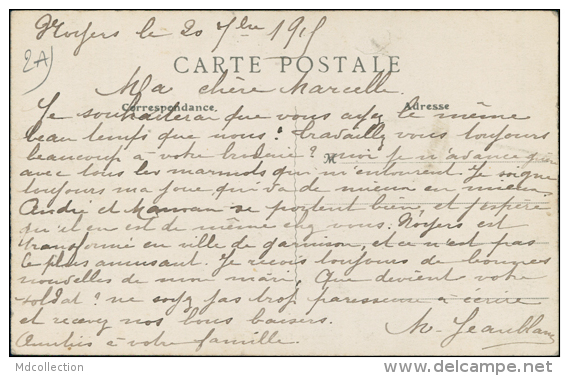 Noyers le 20 7bre 1915
2A
CARTE POSTALE
Ma chère Marcelle
Correspondance. Adresse
Je souhaiterai que vous ayez le même
beau temps que nous! travaillez vous toujours
beaucoup à votre broderie? M moi je n'avance guère
avec tous les marmots qui m'entourent. Je soigne
toujours ma joue qui va de mieux en mieux.
André et Maman se portent bien, et j'espère
qu'il en est de même chez vous. Noyers est
transformé en ville de garnison, et ce n'est pas
le plus amusant. Je reçois toujours de bonnes
nouvelles de mon mari. Que devient votre
soldat? ne soyez pas trop paresseuse à écrire
et recevez nos bons baisers.
Amitiés à votre famille.
Mdcollection
delcampe.net